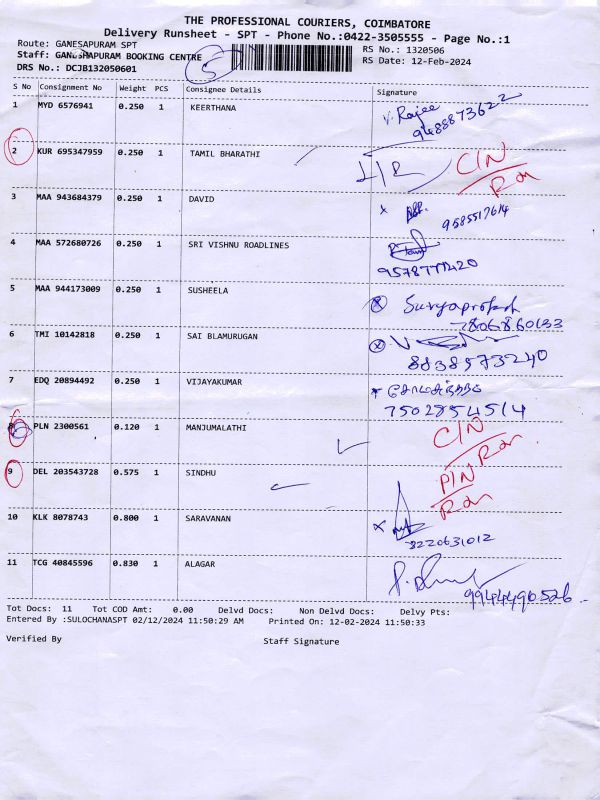 THE PROFESSIONAL COURIERS, COIMBATORE
Delivery Runsheet - SPT - Phone No.:0422-3505555 - Page No.:1
Route: GANESAPURAM SPT
RS No.: 1320506
Staff: GANESHAPURAM BOOKING CENTRE
5
RS Date: 12-Feb-2024
DRS No.: DCJB132050601
S No Consignment No Weight PCS Consignee Details Signature
1 MYD 6576941 0.250 1 KEERTHANA V. Rajee
9488873622
2 KUR 695347959 0.250 1 TAMIL BHARATHI C/N
3 MAA 943684379 0.250 1 DAVID x
9585517614
4 MAA 572680726 0.250 1 SRI VISHNU ROADLINES
9578777420
5 MAA 944173009 0.250 1 SUSHEELA x Suryaprakash
7806860133
6 TMI 10142818 0.250 1 SAI BLAMURUGAN x
8838573240
7 EDQ 20894492 0.250 1 VIJAYAKUMAR
7502854514
8 PLN 2300561 0.120 1 MANJUMALATHI C/N
9 DEL 203543728 0.575 1 SINDHU P/N
10 KLK 8078743 0.800 1 SARAVANAN x
8220631012
11 TCG 40845596 0.830 1 ALAGAR
9944490526
Tot Docs: 11 Tot COD Amt: 0.00 Delvd Docs: Non Delvd Docs: Delvy Pts:
Entered By :SULOCHANASPT 02/12/2024 11:50:29 AM Printed On: 12-02-2024 11:50:33
Verified By Staff Signature